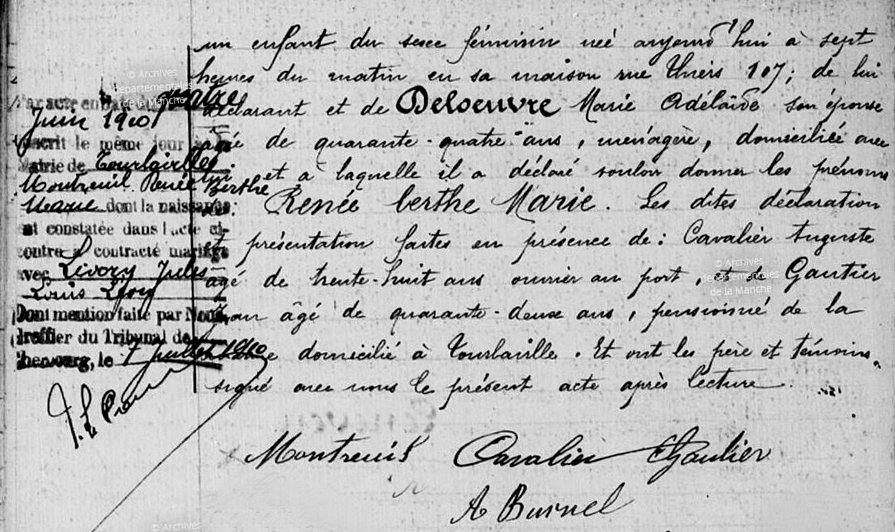 un enfant du sexe féminin née aujourd'hui à sept
heures du matin en sa maison rue Thiers 107; de lui
déclarant et de Deloeuvre Marie Adélaïde son épouse
âgé de quarante-quatre ans, ménagère, domiciliée avec
lui et à laquelle il a déclaré vouloir donner les prénoms
de: Renée berthe Marie. Les dites déclaration
et présentation faites en présence de: Cavalier Auguste
âgé de trente-huit ans ouvrier au port, et de Gautier
âgé de quarante-deux ans, pensionné de la
domicilié à Tourlaville. Et ont les père et témoins
signé avec nous le présent acte après lecture.
Par acte en date du quatre
Juin 1910
inscrit le même jour
Mairie de Tourlaville
Montreuil Renée Berthe
Marie dont la naissance
est constatée dans l'acte ci-
contre a contracté mariage
avec Livory Jules
Louis Léon
Dont mention faite par Nous
Greffier du Tribunal de
Cherbourg, le 7 Juillet 1910
Montreuil Cavalier Gautier
A Burnel
© Archives
départementales
de la Manche
© Archives
départementales
de la Manche
© Archives